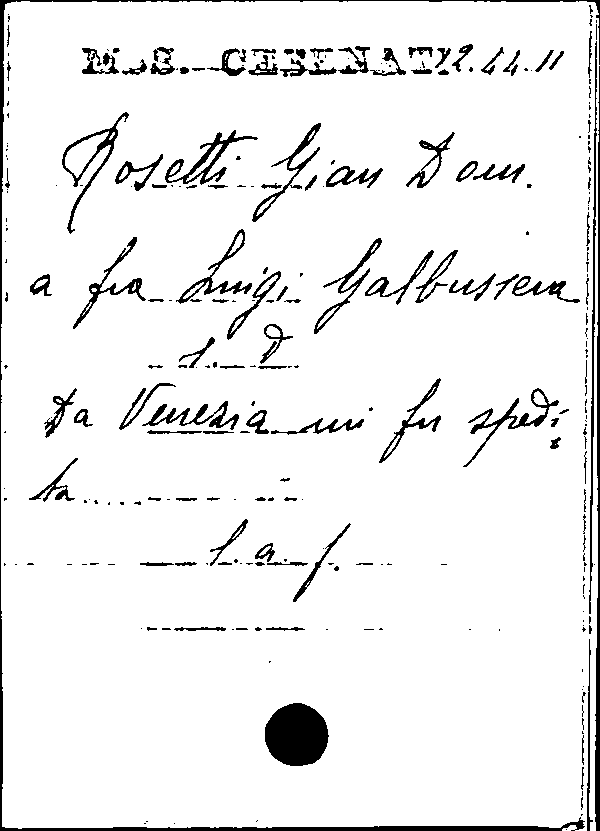 M.S. CESENATI 2.44.11
Rosetti Gian Dom.
a fra Luigi Galbussera
s. d
Da Venezia mi fu spedi=
ta
l. a. f.